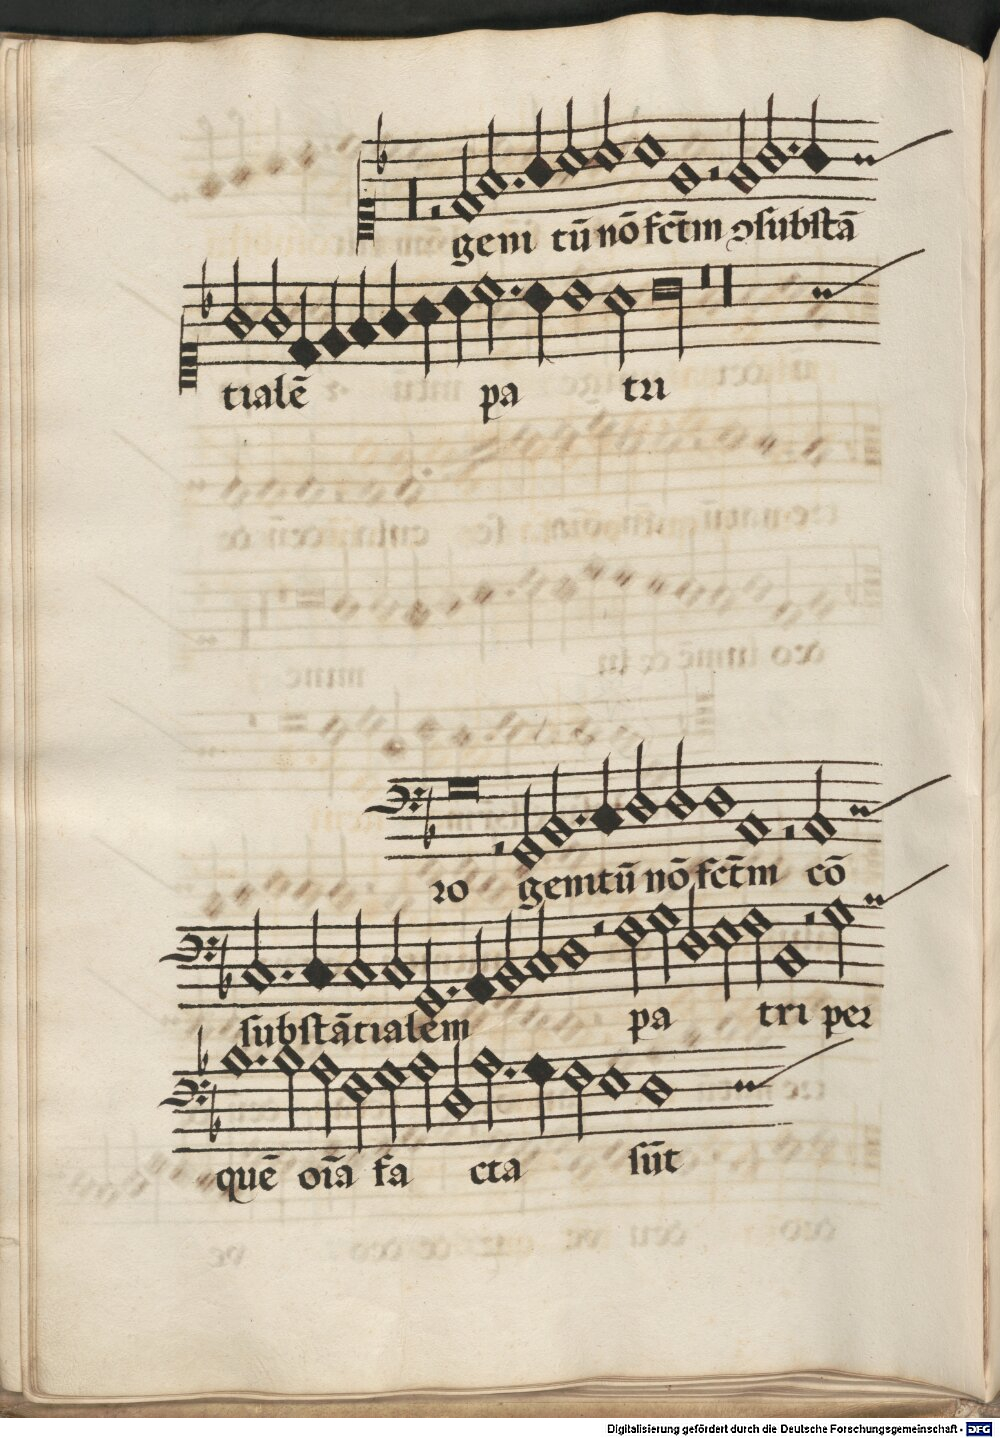 geni tū nō fc̄tm ɔſubſtā
tialē pa tri
ro genitū nō fc̄tm cō
ſubſtātialem pa tri per
quē oīa fa cta ſūt
Digitalisierung gefördert durch die Deutsche Forschungsgemeinschaft - DFG